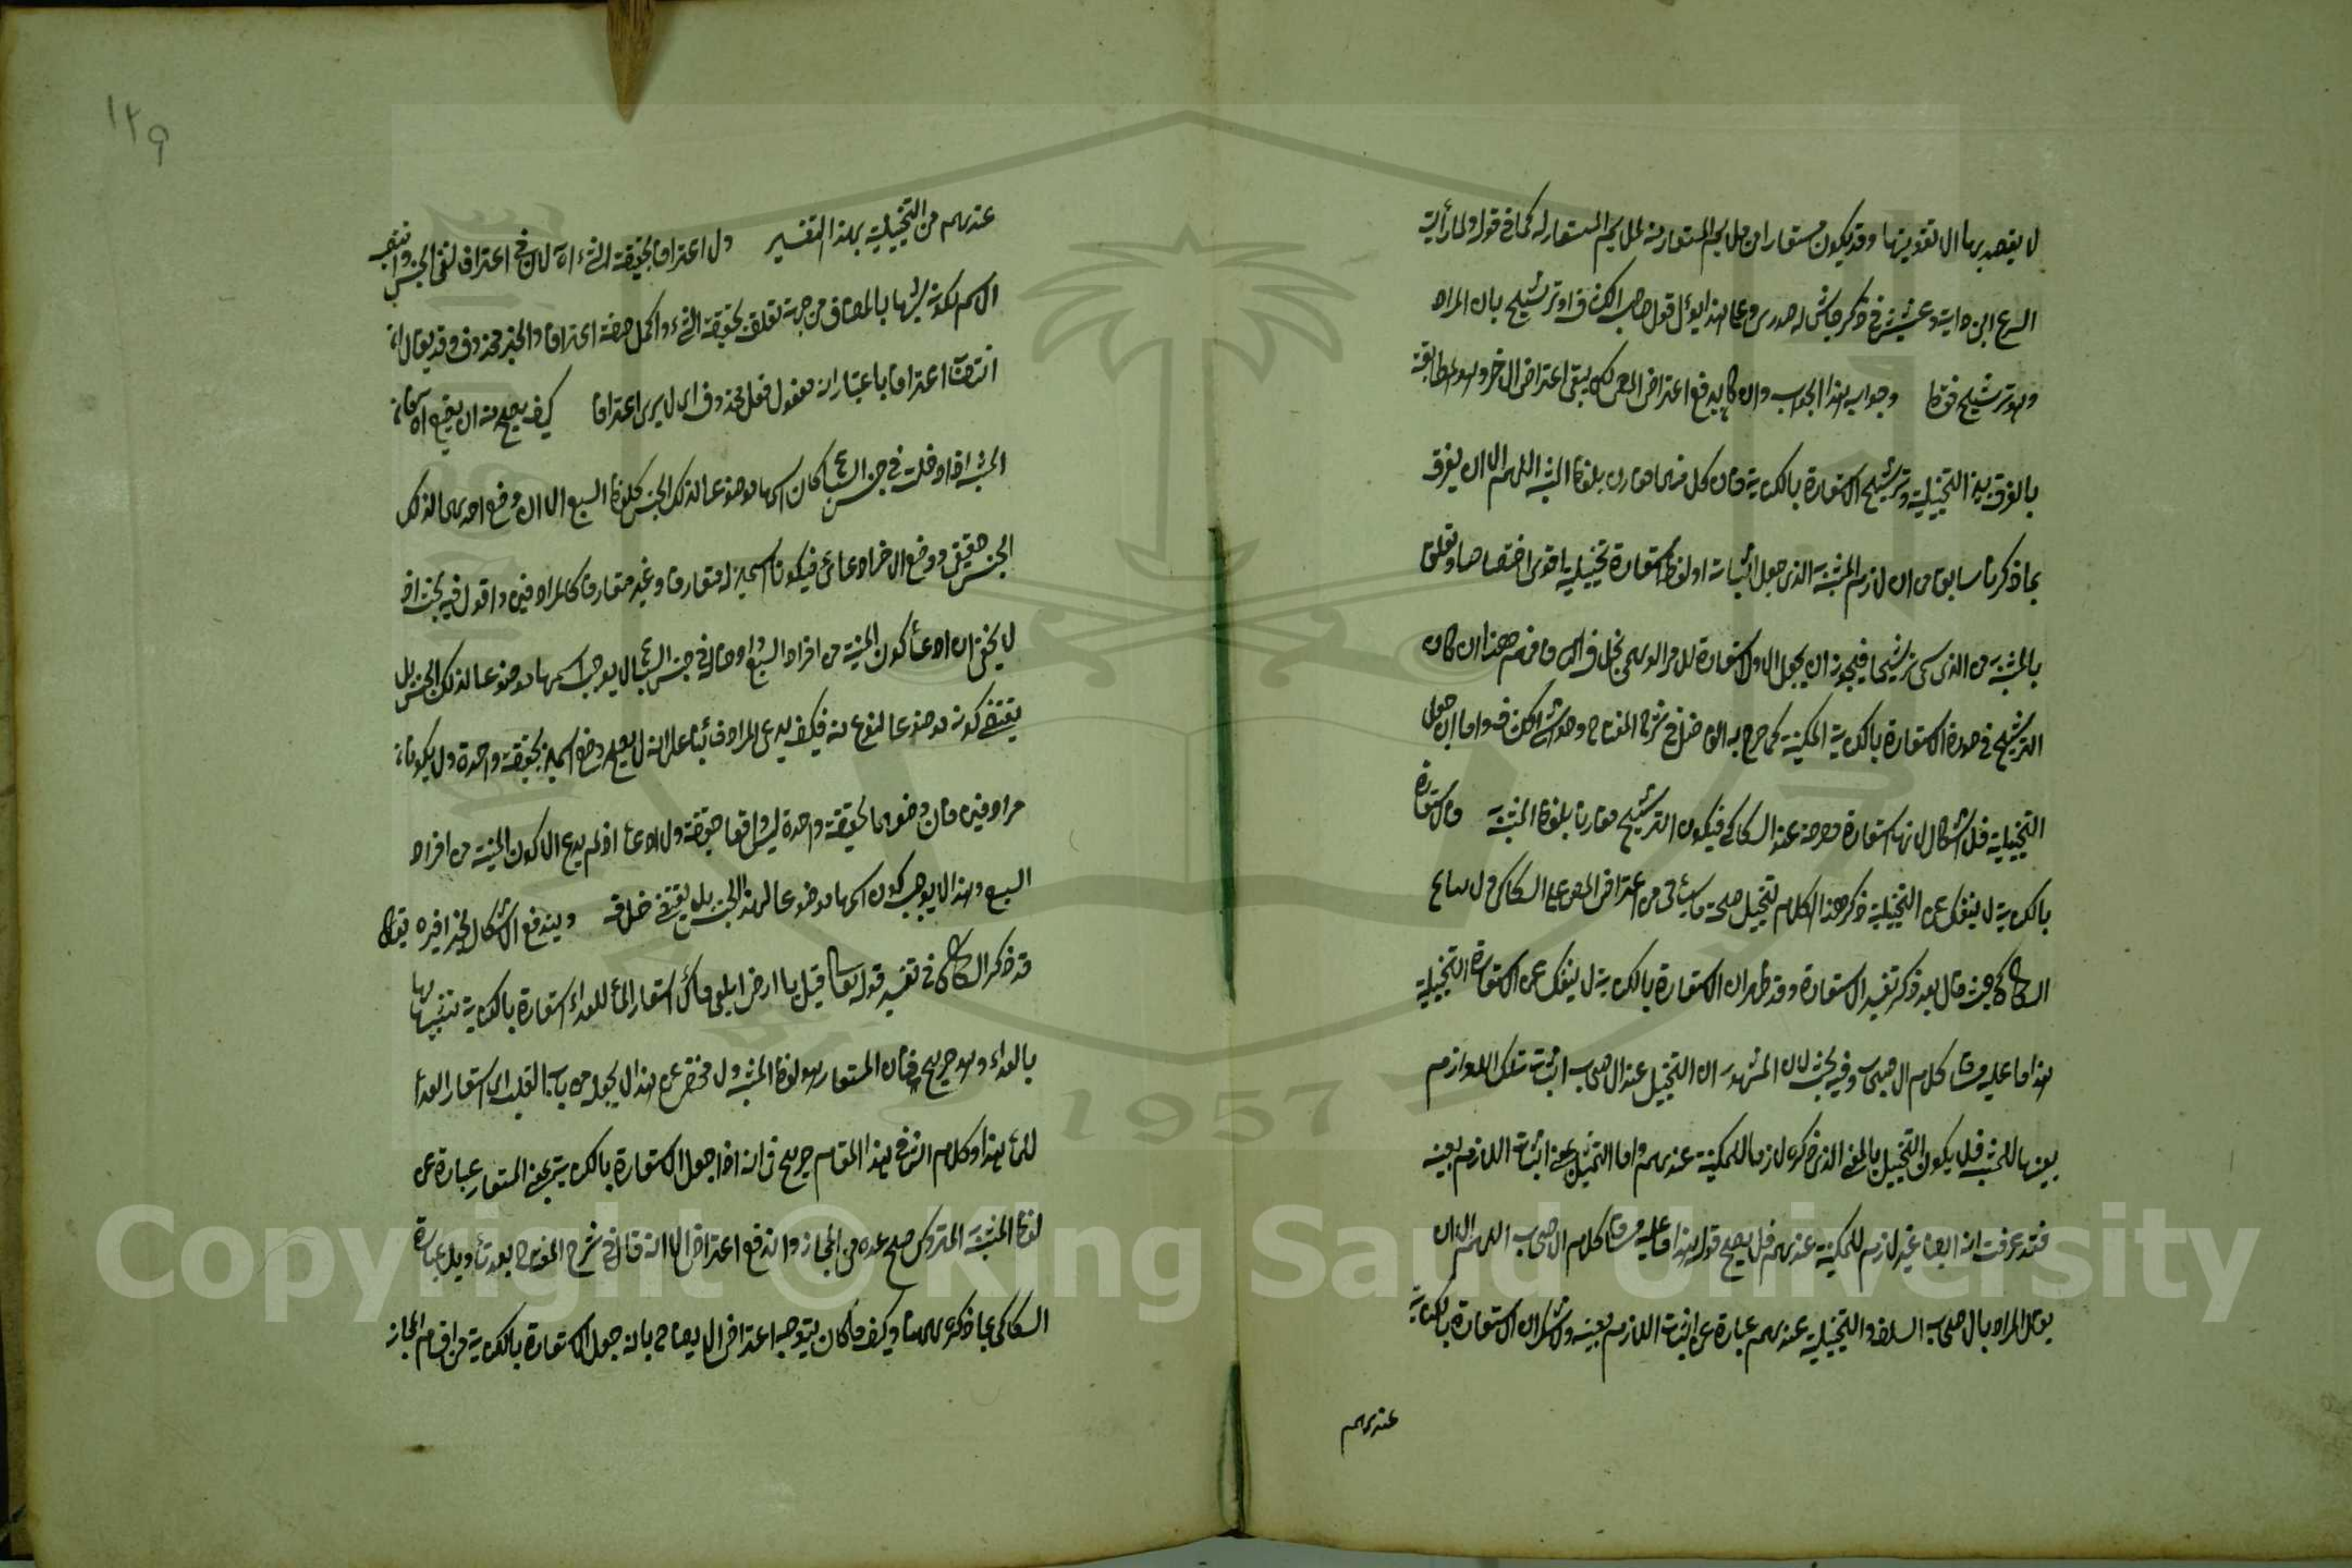 لا يقصد بها الا تقويتها وقد يكون مستعارا من ملايم المستعار منه لملايم المستعار له كما في قوله ولما رأيت
النسر عز ابن داية وعشش في ذكر جاش له صدري وعلى هذا يؤل قول صاحب الكشاف او ترشيح بان المراد
وهو ترشيح فقط وجوابه هذا الجواب وان كان يدفع اعتراض المص لكن يبقى اعتراض الاخر وهو المطابقة
بالفرق بين التخييلية وترشيح الاستعارة بالكناية فان كل منهما مقارن بلفظ المشبه اللهم الا ان يفرق
بما ذكرنا سابقا من ان لازم المشبه به الذي جعل اثباته او لفظه استعارة تخييلية اقوى اختصاصا وتعلقا
بالمشبه به من الذي سمي ترشيحا فيجوز ان يجعل الاول استعارة للامر الوهمي بخلاف الثاني فافهم هذا ان كان
الترشيح في صورة الاستعارة بالكناية المكنية كما صرح به الفاضل في شرح المفتاح وحواشي الكشاف واما ان جعل
التخييلية فلا اشكال لانها استعارة مصرحة عند السكاكي فيكون الترشيح مقارنا بلفظ المشبه به والاستعارة
بالكناية لا ينفك عن التخييلية ذكر هذا الكلام لتخييل صحة ما سيأتي من اعتراض المص على السكاكي
السكاكي حيث قال بعد ذكر تفسير الاستعارة وقد ظهر ان الاستعارة بالكناية لا ينفك عن الاستعارة التخييلية
هذا ما عليه مساق كلام الاصحاب وفيه بحث لان المشهور ان التخييل عند الاصحاب اثبات تلك اللوازم
بعينها للمشبه فلا يكون التخييل بالمعنى الذي ذكره لازما للمكنية عندهم واما التخييل بمعنى اثبات اللازم بعينه
فقد عرفت انه ايضا غير لازم للمكنية عندهم فلا يصح قوله هذا ما عليه مساق كلام الاصحاب اللهم الا ان
يقال المراد بالاصحاب السلف والتخييلية عندهم عبارة عن اثبات اللازم بعينه ولا شك ان الاستعارة بالكناية
عندهم
١٢٩
عندهم من التخييلية بهذا التفسير ولا اعترافا بحقيقة الشيء اه لا في اعترافا لنفي الجنس وانتصب
الاسم لكونه شبيها بالمضاف من جهة تعلق بحقيقة الشيء واكمل صفة اعترافا والخبر محذوف وقد يقال ان
انتصاب اعترافا باعتبار انه مفعول فعل محذوف اي لا يرى اعترافا كيف يصح منه ان يضع اه
المشبه اذا دخلت في جنس السباع كان اسمها موضوعا لذلك الجنس كلفظ السبع الا ان وضع احدهما لذلك
الجنس حقيقي ووضع الاخر ادعائي فيكون اسمين له متعارفا وغير متعارف كالمرادفين واقول فيه بحث اذ
لا يخفى ان ادعاء كون المنية من افراد السبع وادخالها في جنس السباع لا يوجب اسمها موضوعا لذلك الجنس بل
يقتضي كونه موضوعا لنوع منه فكيف يدعى المرادف بناء على انه لا يصح وضع اسمين بحقيقة واحدة ولا يكونان
مرادفين فان وضعهما لحقيقة واحدة ليس واقعا حقيقة ولا ادعاء اذ لم يدع الا كون المنية من افراد
السبع وهذا لا يوجب كون اسمها موضوعا لهذا الجنس بل يقتضي خلافه ويندفع الاشكال بحذافيره يقال
قد ذكر السكاكي في تفسير قوله تعالى قيل يا ارض ابلعي ماءك استعار الماء للغذاء استعارة بالكناية تشبيها لها
بالغذاء وهو صريح فان المستعار هو لفظ المشبه ولا مخلص عن هذا الا بجعله من باب القلب اي استعار الغذاء
للماء هذا وكلام الش في هذا المقام صريح في انه اذا جعل الاستعارة بالكناية بمعنى المستعار عبارة عن
لفظ المشبه به المتروك صح عده من المجاز واندفع اعتراض الا انه قال في شرح المفتاح بعد تأويل عبارة
السكاكي بما ذكره ههنا وكيف ما كان يتوجه اعتراض الايضاح بانه جعل الاستعارة بالكناية من اقسام المجاز